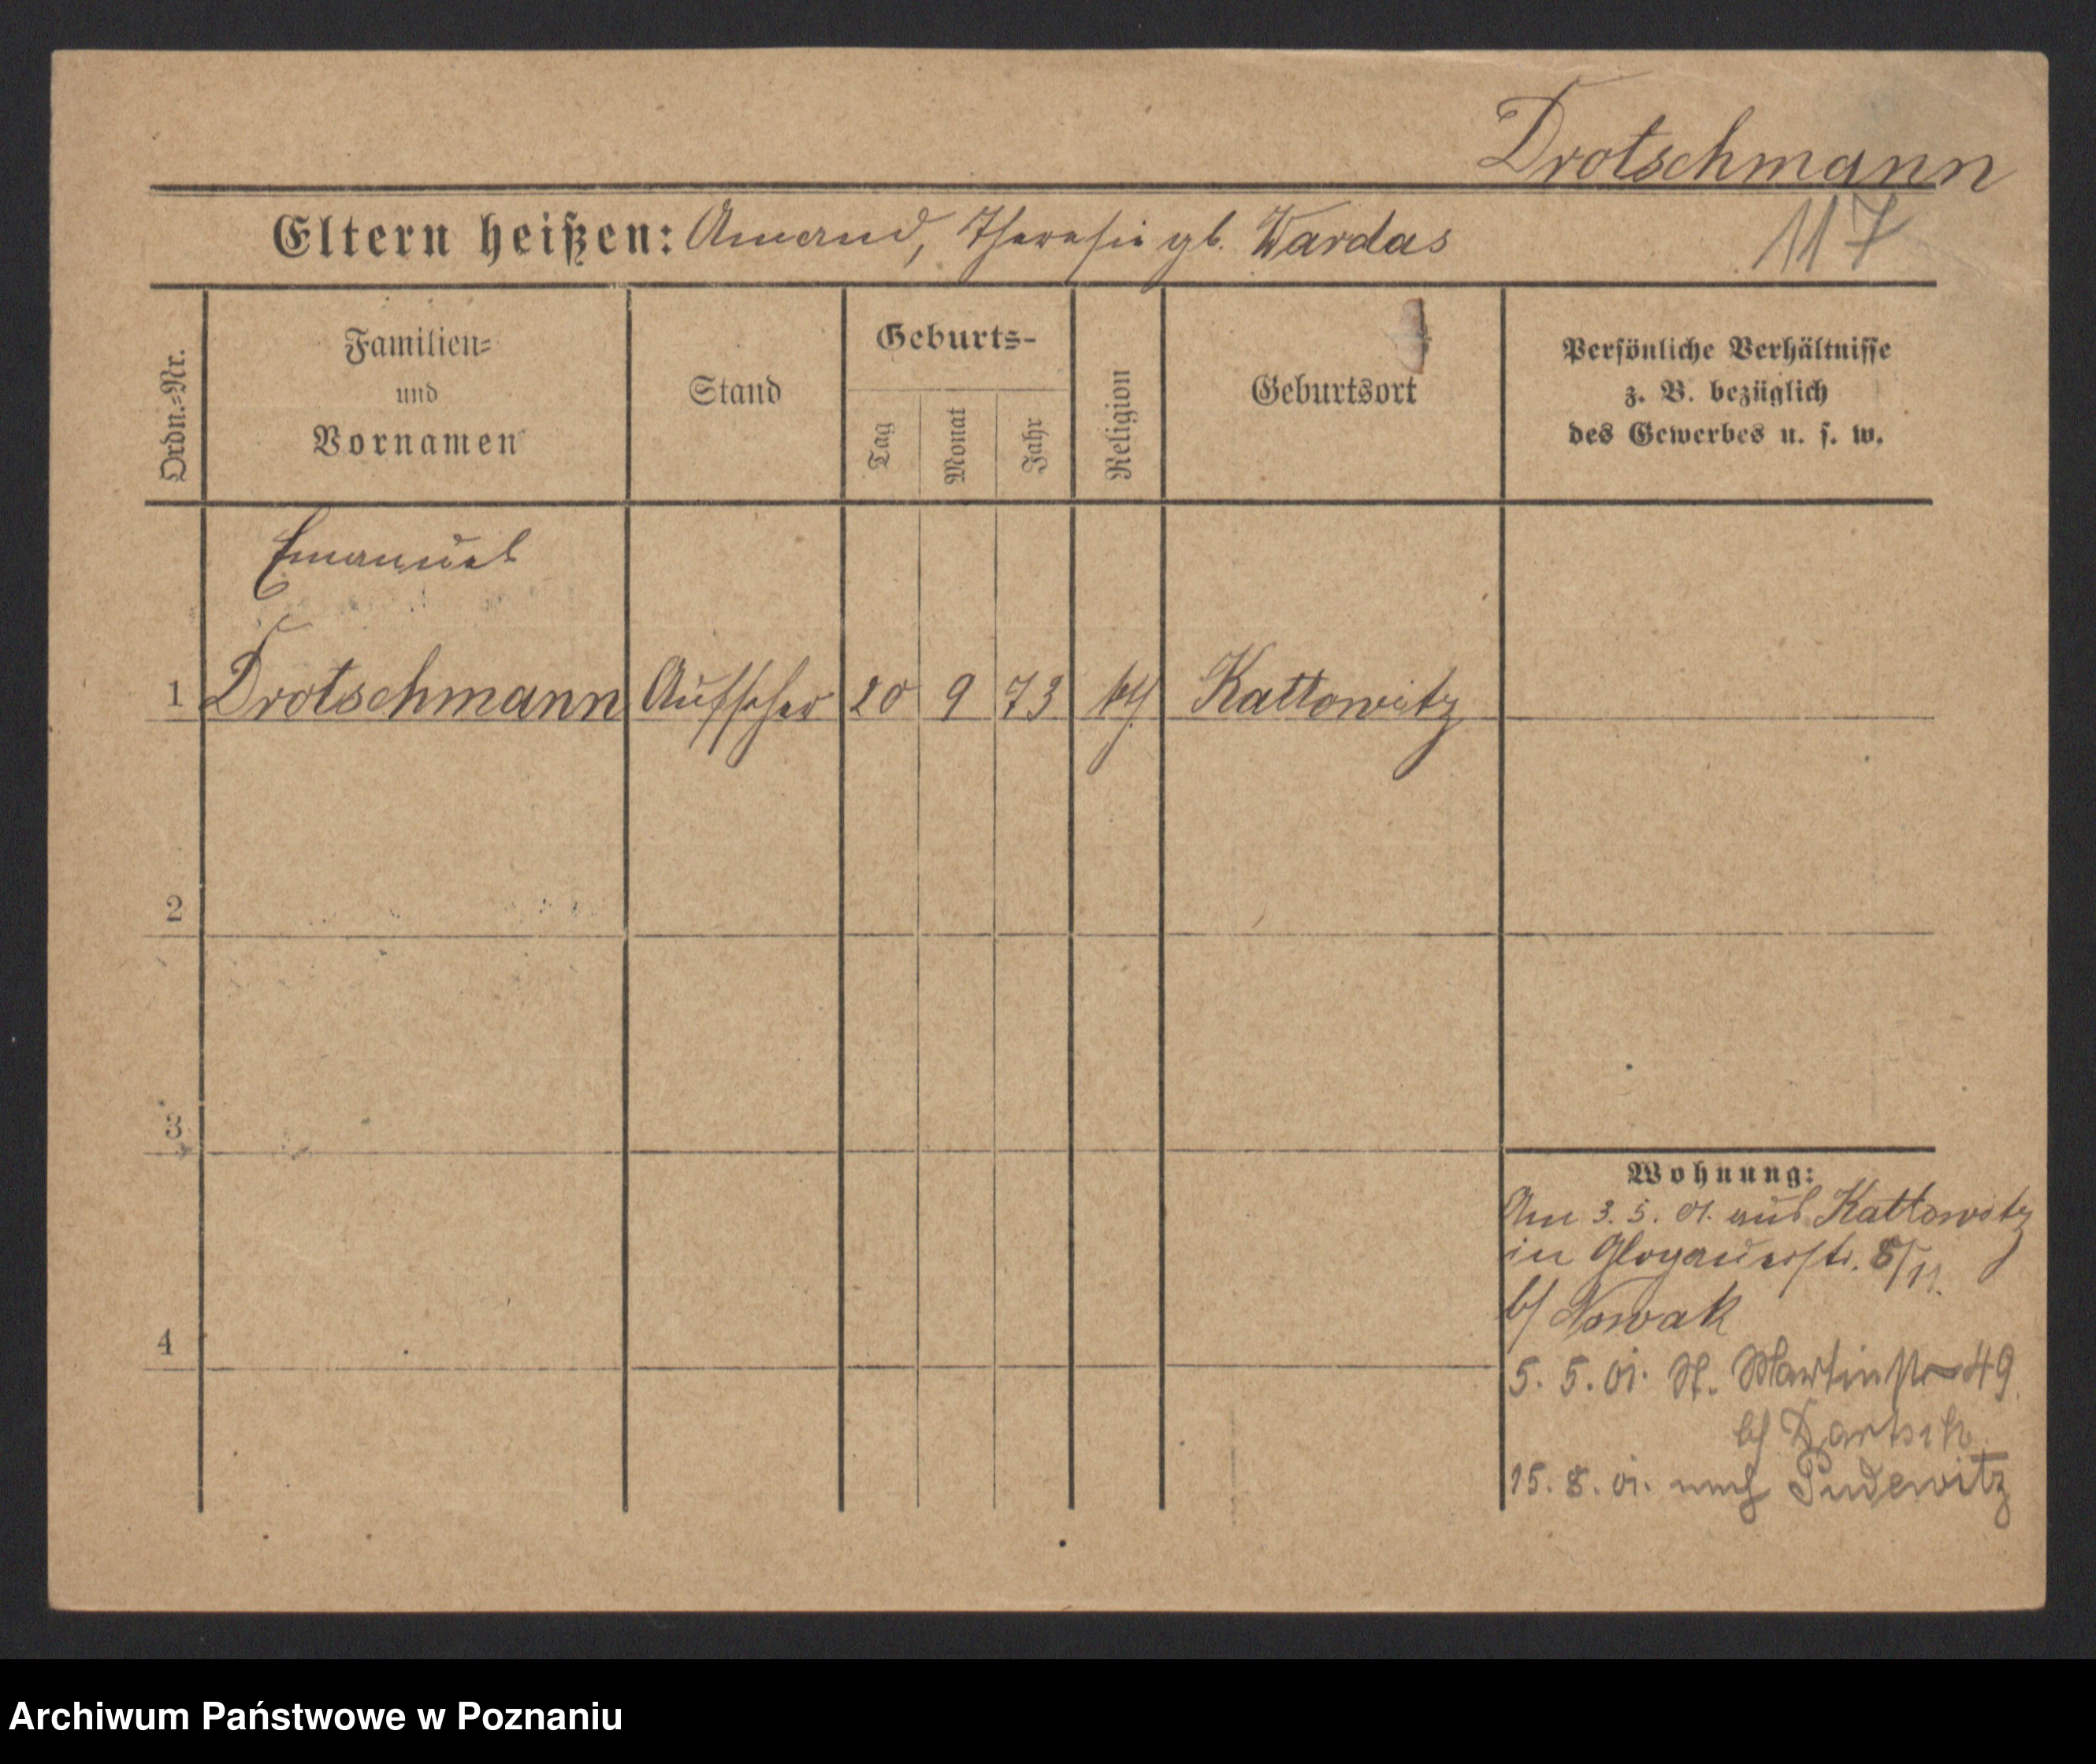 Drotschmann
117
Eltern heißen: Amand, Theresie gb. Wardas
Ordn.=Nr.
Familien=
und
Vornamen
Stand
Geburts-
Tag
Monat
Jahr
Religion
Geburtsort
Persönliche Verhältnisse
z. B. bezüglich
des Gewerbes u. s. w.
Emanuel
1 Drotschmann Aufseher 20 9 73 kth Kattowitz
2
3
4
Wohnung:
Am 3. 5. 01. aus Kattowitz
in Glogauerstr. 8/11.
b/ Nowak
5. 5. 01. St. Martinstr 49
b/
15. 8. 01. nach Pudewitz
Archiwum Państwowe w Poznaniu